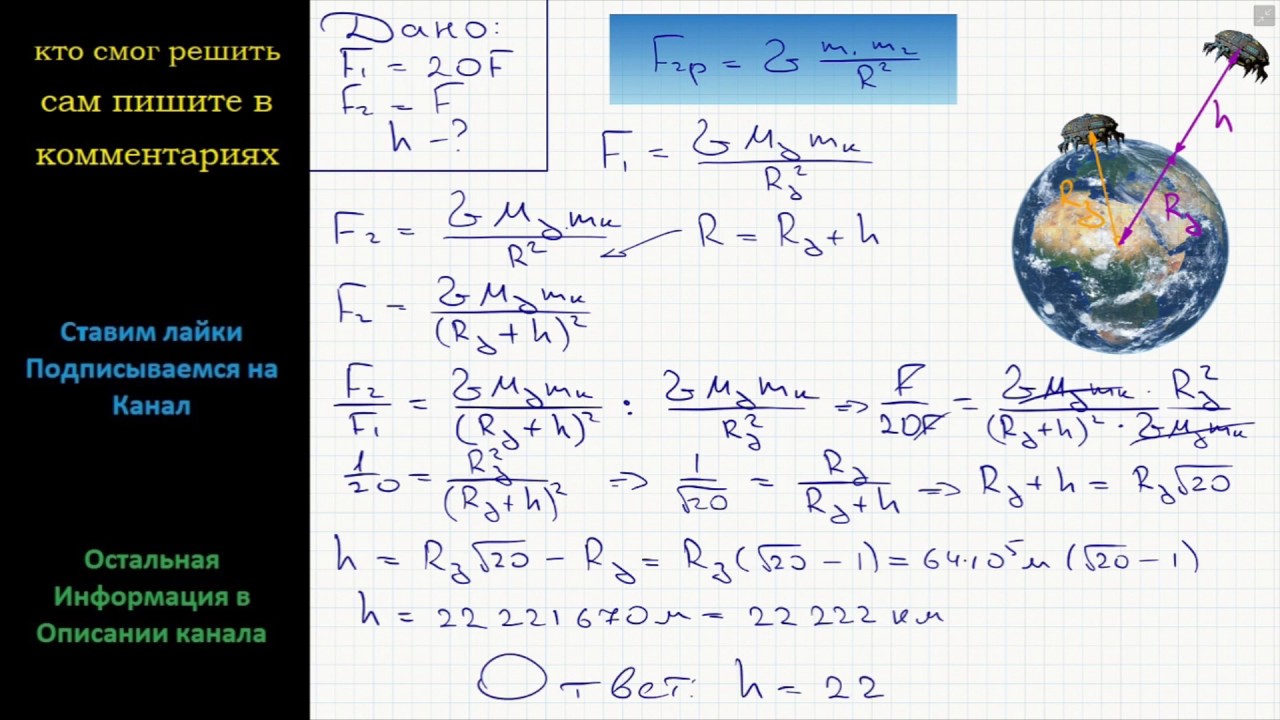 кто смог решить
сам пишите в
комментариях
Ставим лайки
Подписываемся на
Канал
Остальная
Информация в
Описании канала
Дано:
F₁ = 20F
F₂ = F
h - ?
Fгр = G m₁ m₂ / R²
F₁ = G Mз mк / Rз²
F₂ = G Mз mк / R²
R = Rз + h
F₂ = G Mз mк / (Rз + h)²
F₂/F₁ = G Mз mк / (Rз + h)² : G Mз mк / Rз² => F/20F = G Mз mк · Rз² / (Rз + h)² · G Mз mк
1/20 = Rз² / (Rз + h)² => 1/√20 = Rз / (Rз + h) => Rз + h = Rз√20
h = Rз√20 - Rз = Rз(√20 - 1) = 64·10⁵м (√20 - 1)
h = 22 221 670м = 22 222 км
Ответ: h = 22
h
Rз
Rз